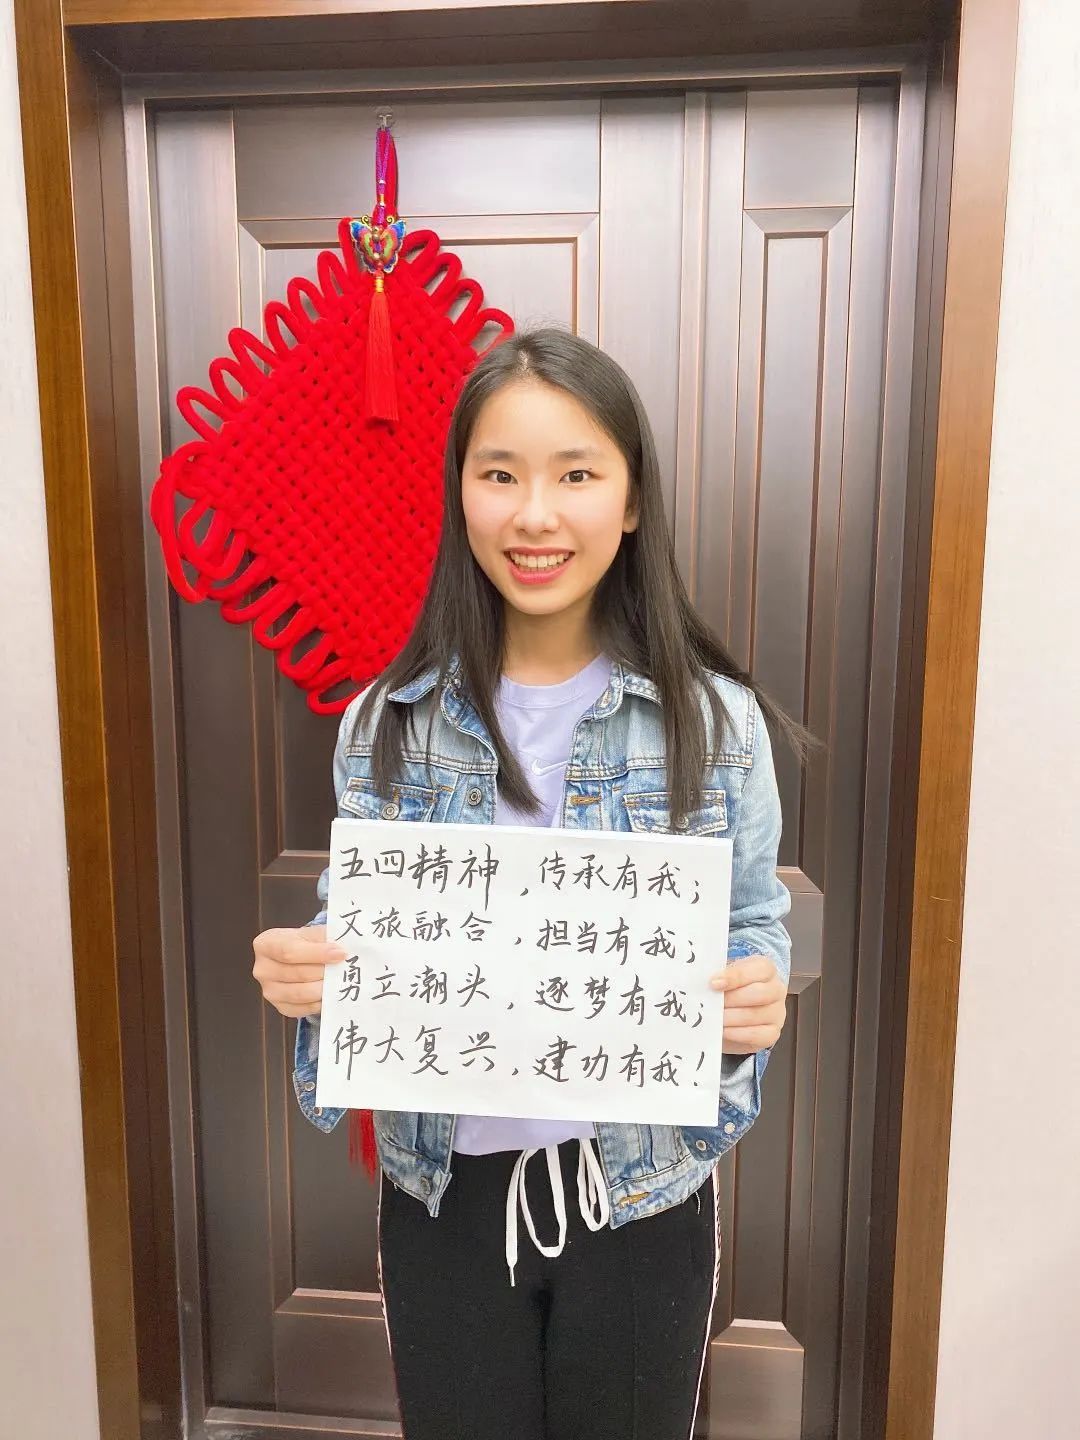 五四精神,传承有我;
文旅融合,担当有我;
勇立潮头,逐梦有我;
伟大复兴,建功有我!